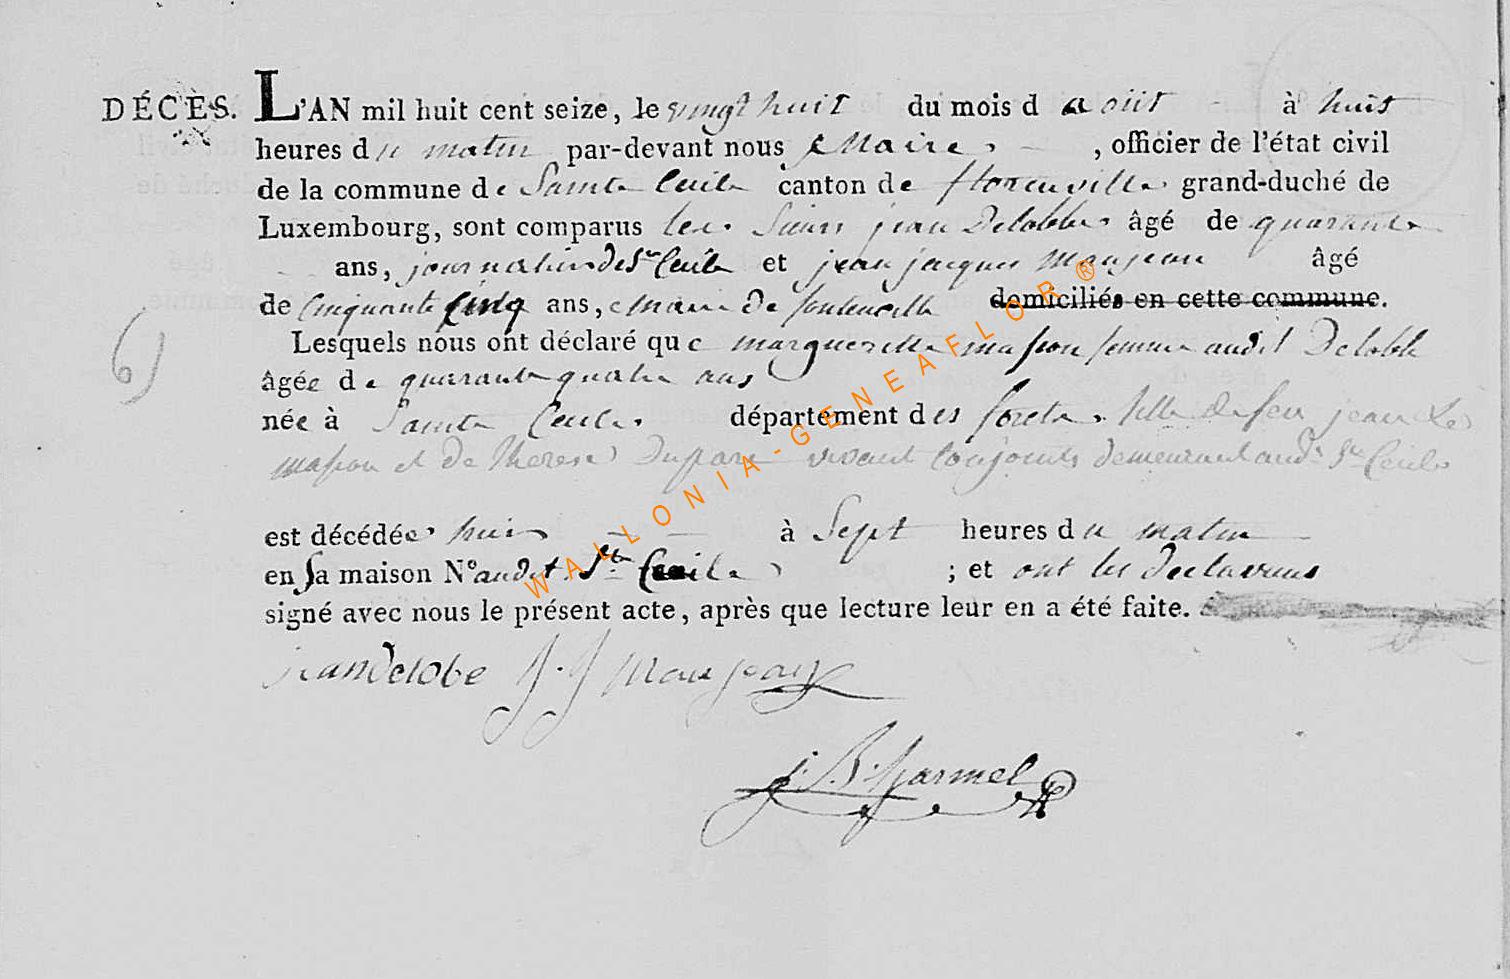 DÉCÈS. L'AN mil huit cent seize, le vingt huit du mois d aout à huit
heures du matin par-devant nous Maire, officier de l'état civil
de la commune de Sainte Cecile canton de florenville grand-duché de
Luxembourg, sont comparus les Sieurs jean Delobbe âgé de quarante
ans, journalier de Ste Cecile et jean jacques Maujean âgé
de Cinquante Cinq ans, Maire de fontenoille domiciliés en cette commune.
Lesquels nous ont déclaré que margueritte masson femme audit Delobbe
6)
âgée de quarante quatre ans
née à Sainte Cecile département des forets, fille de feu jean
masson et de Therese vivant conjoints demeurant aud. Ste Cecile
est décédée hier à Sept heures du matin
en sa maison N° audit Ste Cecile ; et ont les Declarans
signé avec nous le présent acte, après que lecture leur en a été faite.
jean Delobe J. J Maujean
j. B. harmel
WALLONIA-GENEAFLOR®